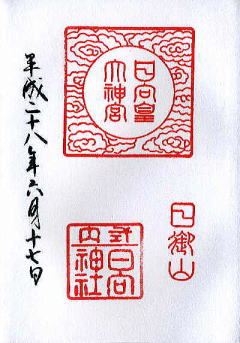 日向皇
大神宮
日御山
式内
日向
神社
平成二十八年六月十七日